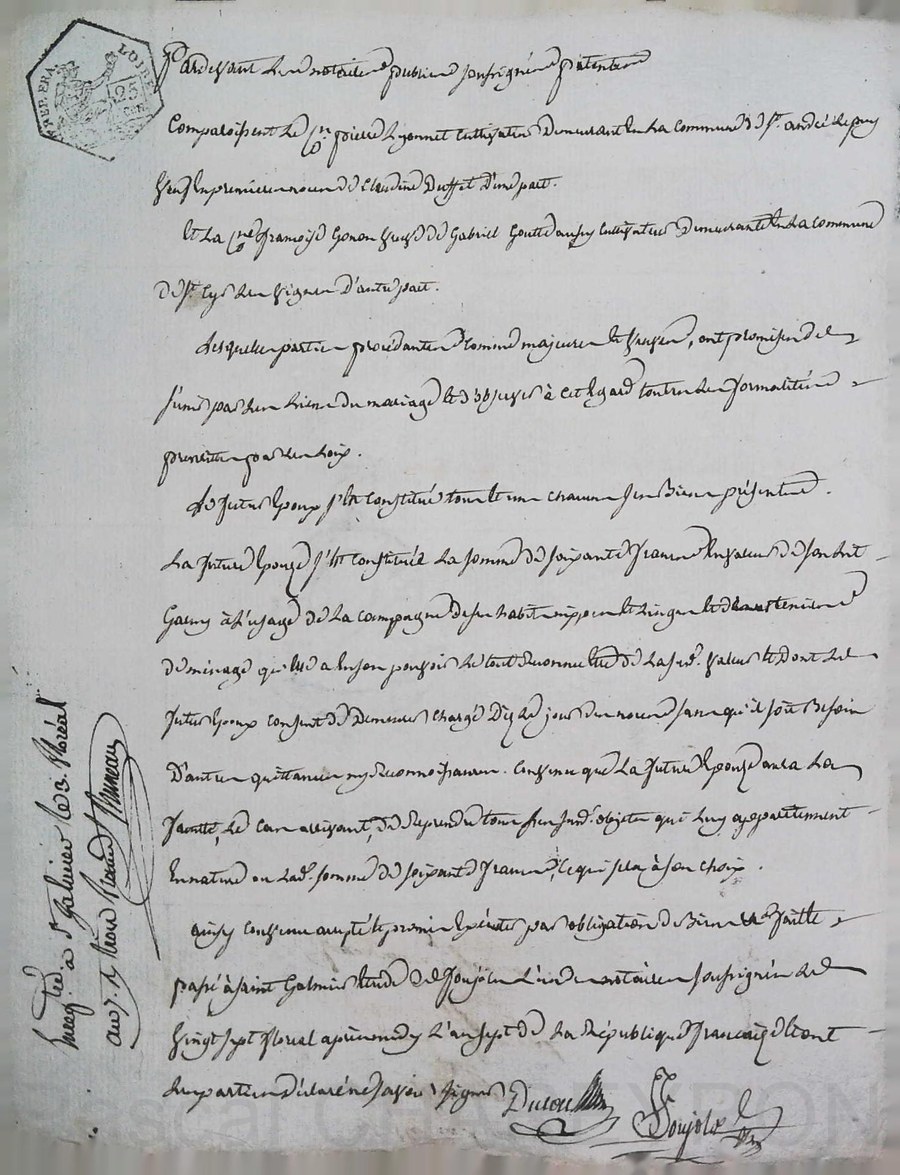 LOIRE
REP. FRA.
25 CEN.
Pardevant Les notaires publics soussignés patentés
Comparoissent Le cyn pierre Lyonnet Cultivateur Demeurant En La Commune de St. andré le puy
Veuf En premieres noces de Claudine Duffet D'une part.
Et La cyne françoise Gonon Veuve de Gabriel Goutte aussy Cultivateur Demeurante En La Commune
de St. Cyr Les Vignes D'autre part.
Lesquelles parties procédantes Comme majeures Et Veuves, ont promis de
s'unir par Les Liens du mariage Et d'observer à Cet Egard toutes Les formalités
prescrites par Les Loix.
Le futur Epoux s'Est Constitué tous Et uns chacuns ses Biens présents.
La future Epouse s'Est Constituée La somme de soixante francs En valeur de son Lit
Garny à L'usage de La Campagne de ses habits nippes Et Linges Et
de ménage qu'Elle a En son pouvoir Le tout Reconnu Etre de La susd. Valeur Et Dont Le
futur Epoux Consent de Demeurer Chargé Dès Le jour des noces sans qu'il soit Besoin
D'autres quittances ny Reconnoissances. Convenu que La future Epouse aura La
faculté, Le Cas arrivant, de Reprendre tous ses susd. objets qui Luy appartiennent
En nature ou Lad. somme de soixante francs, Ce qui sera à son choix.
ainsy Convenu accepté Et promis Exécuter par obligation de Biens faitte
passé à saint Galmier Etude de Soujols L'un des notaires soussignés Le
Vingt sept floreal après midy L'an sept de La République française Et ont
Les parties Déclaré ne savoir signer
Soujols
Enregtré. a St. Galmier le 3. floréal
an 7. Recu